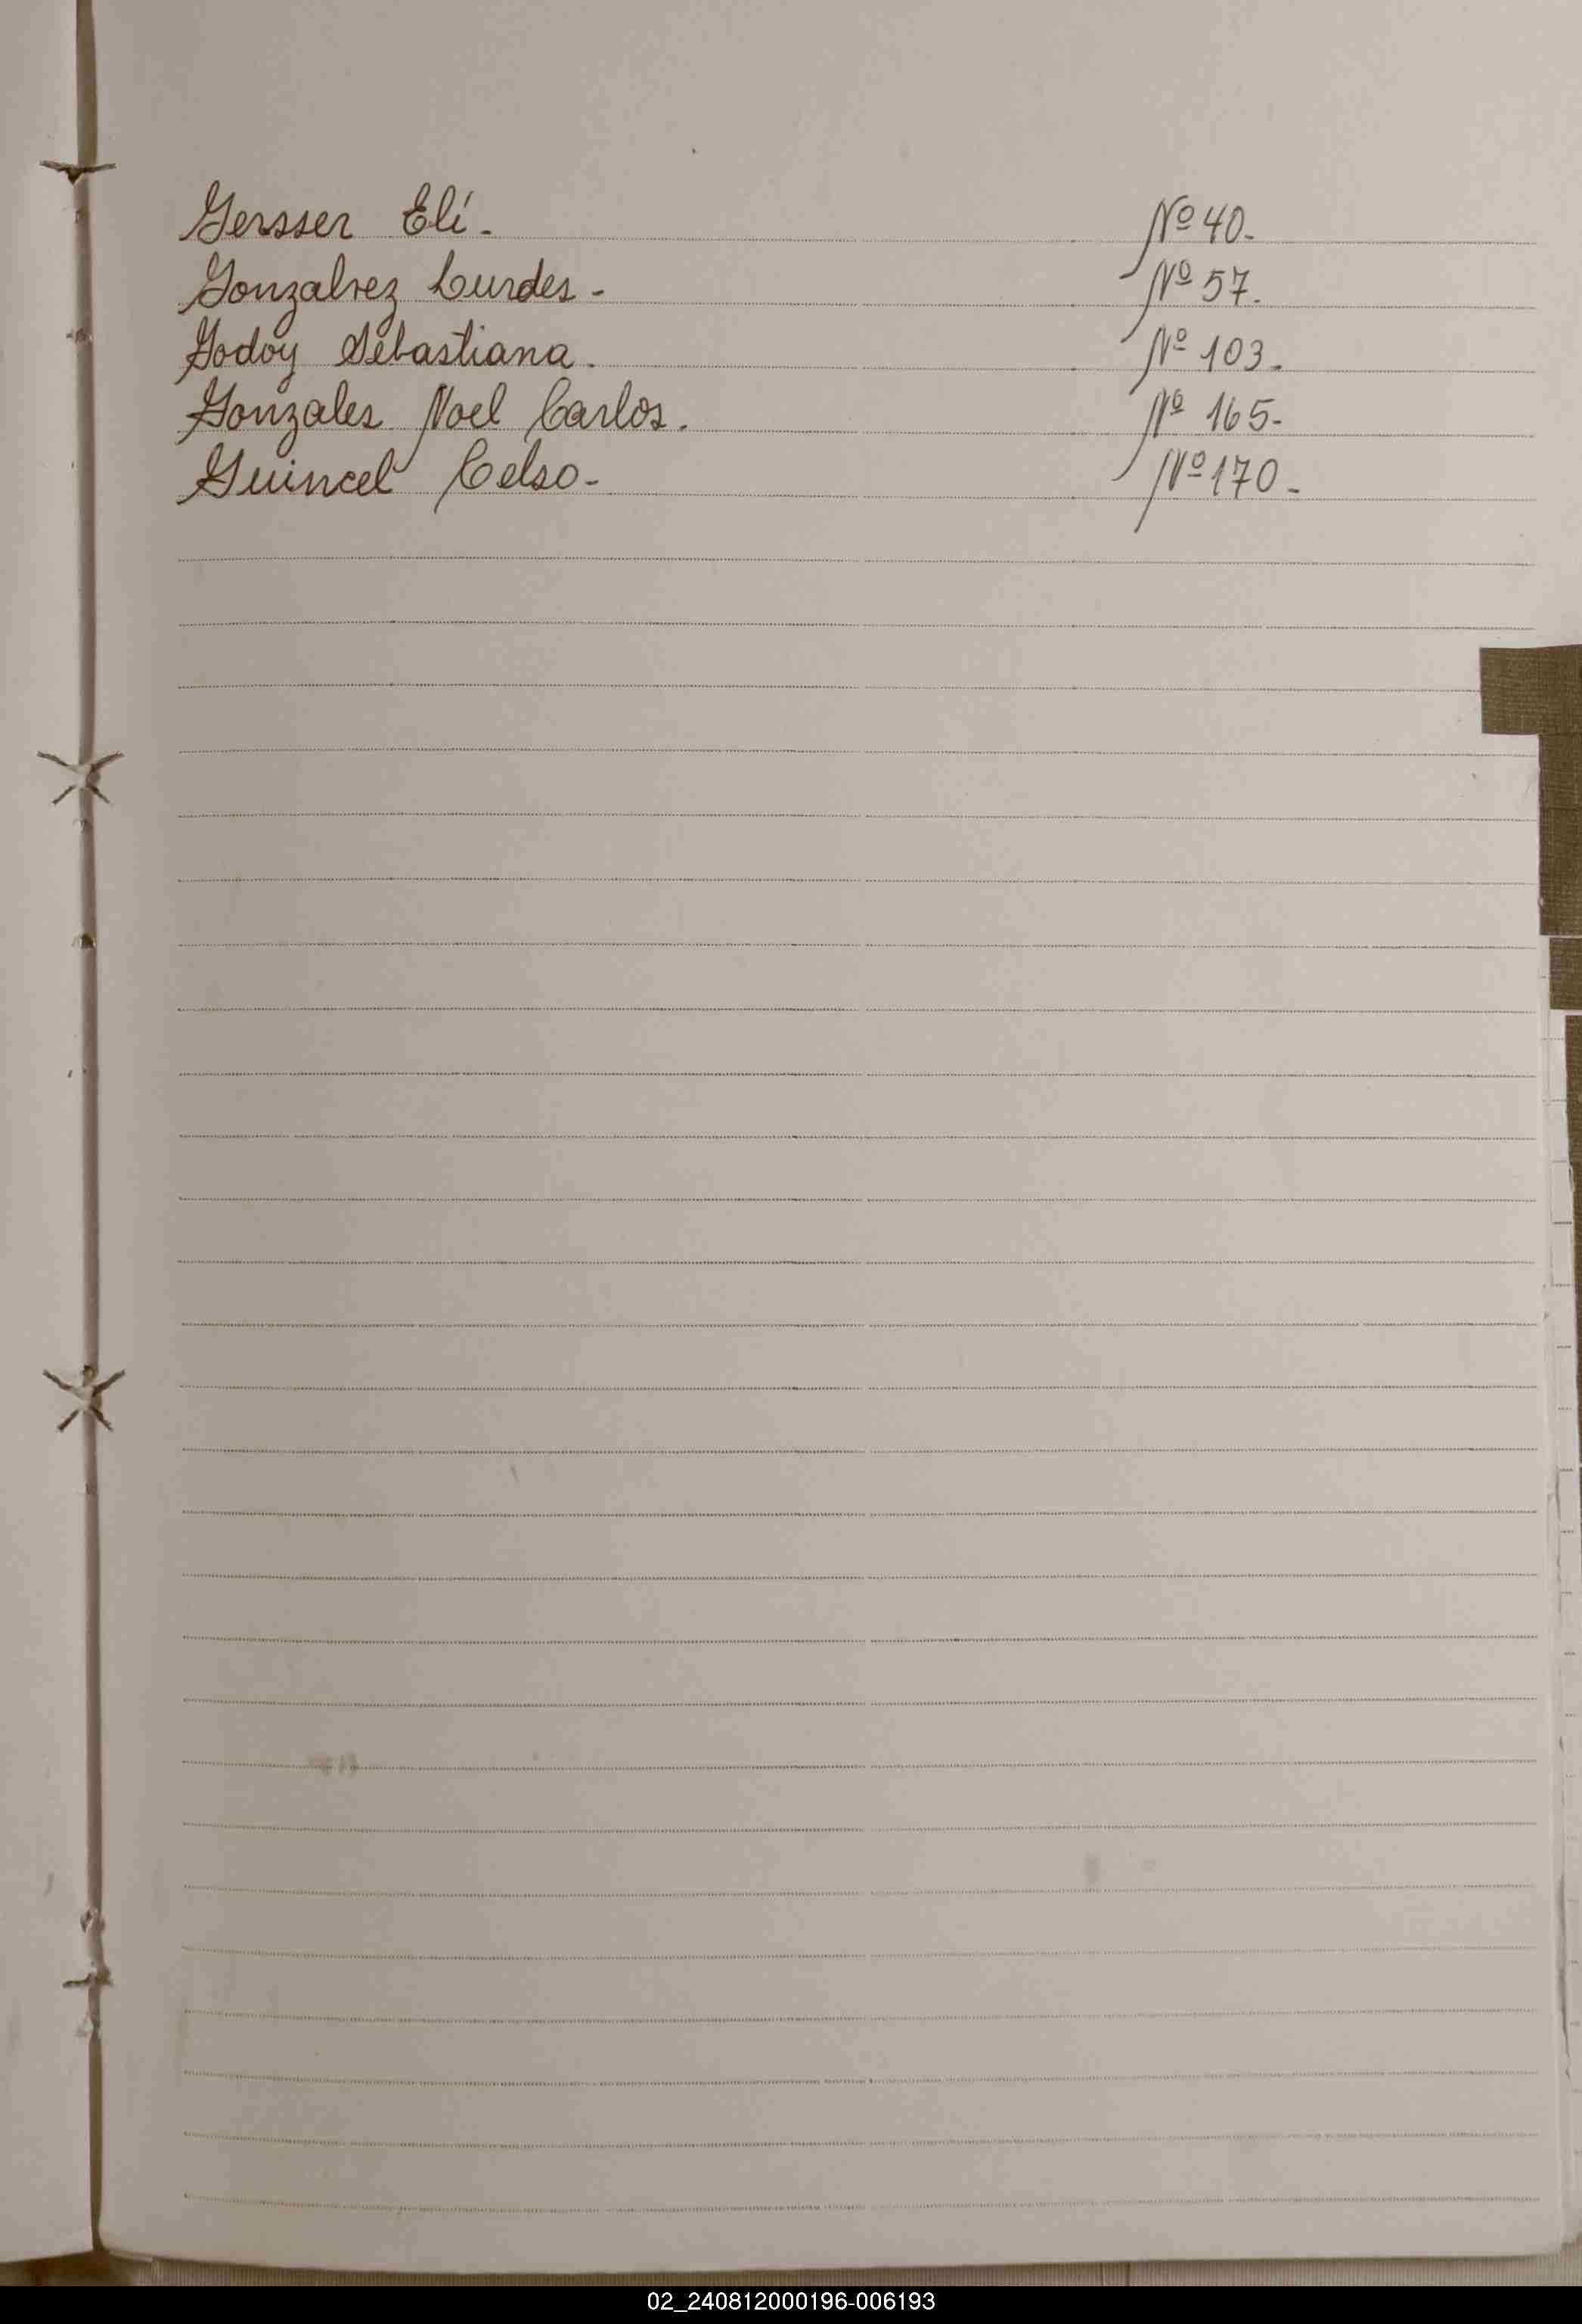 Gersser Elí. Nº 40.
Gonzalvez Lurdes. Nº 57.
Godoy Sebastiana. Nº 103.
Gonzales Noel Carlos. Nº 165.
Guincel Celso. Nº 170.
02_240812000196-006193